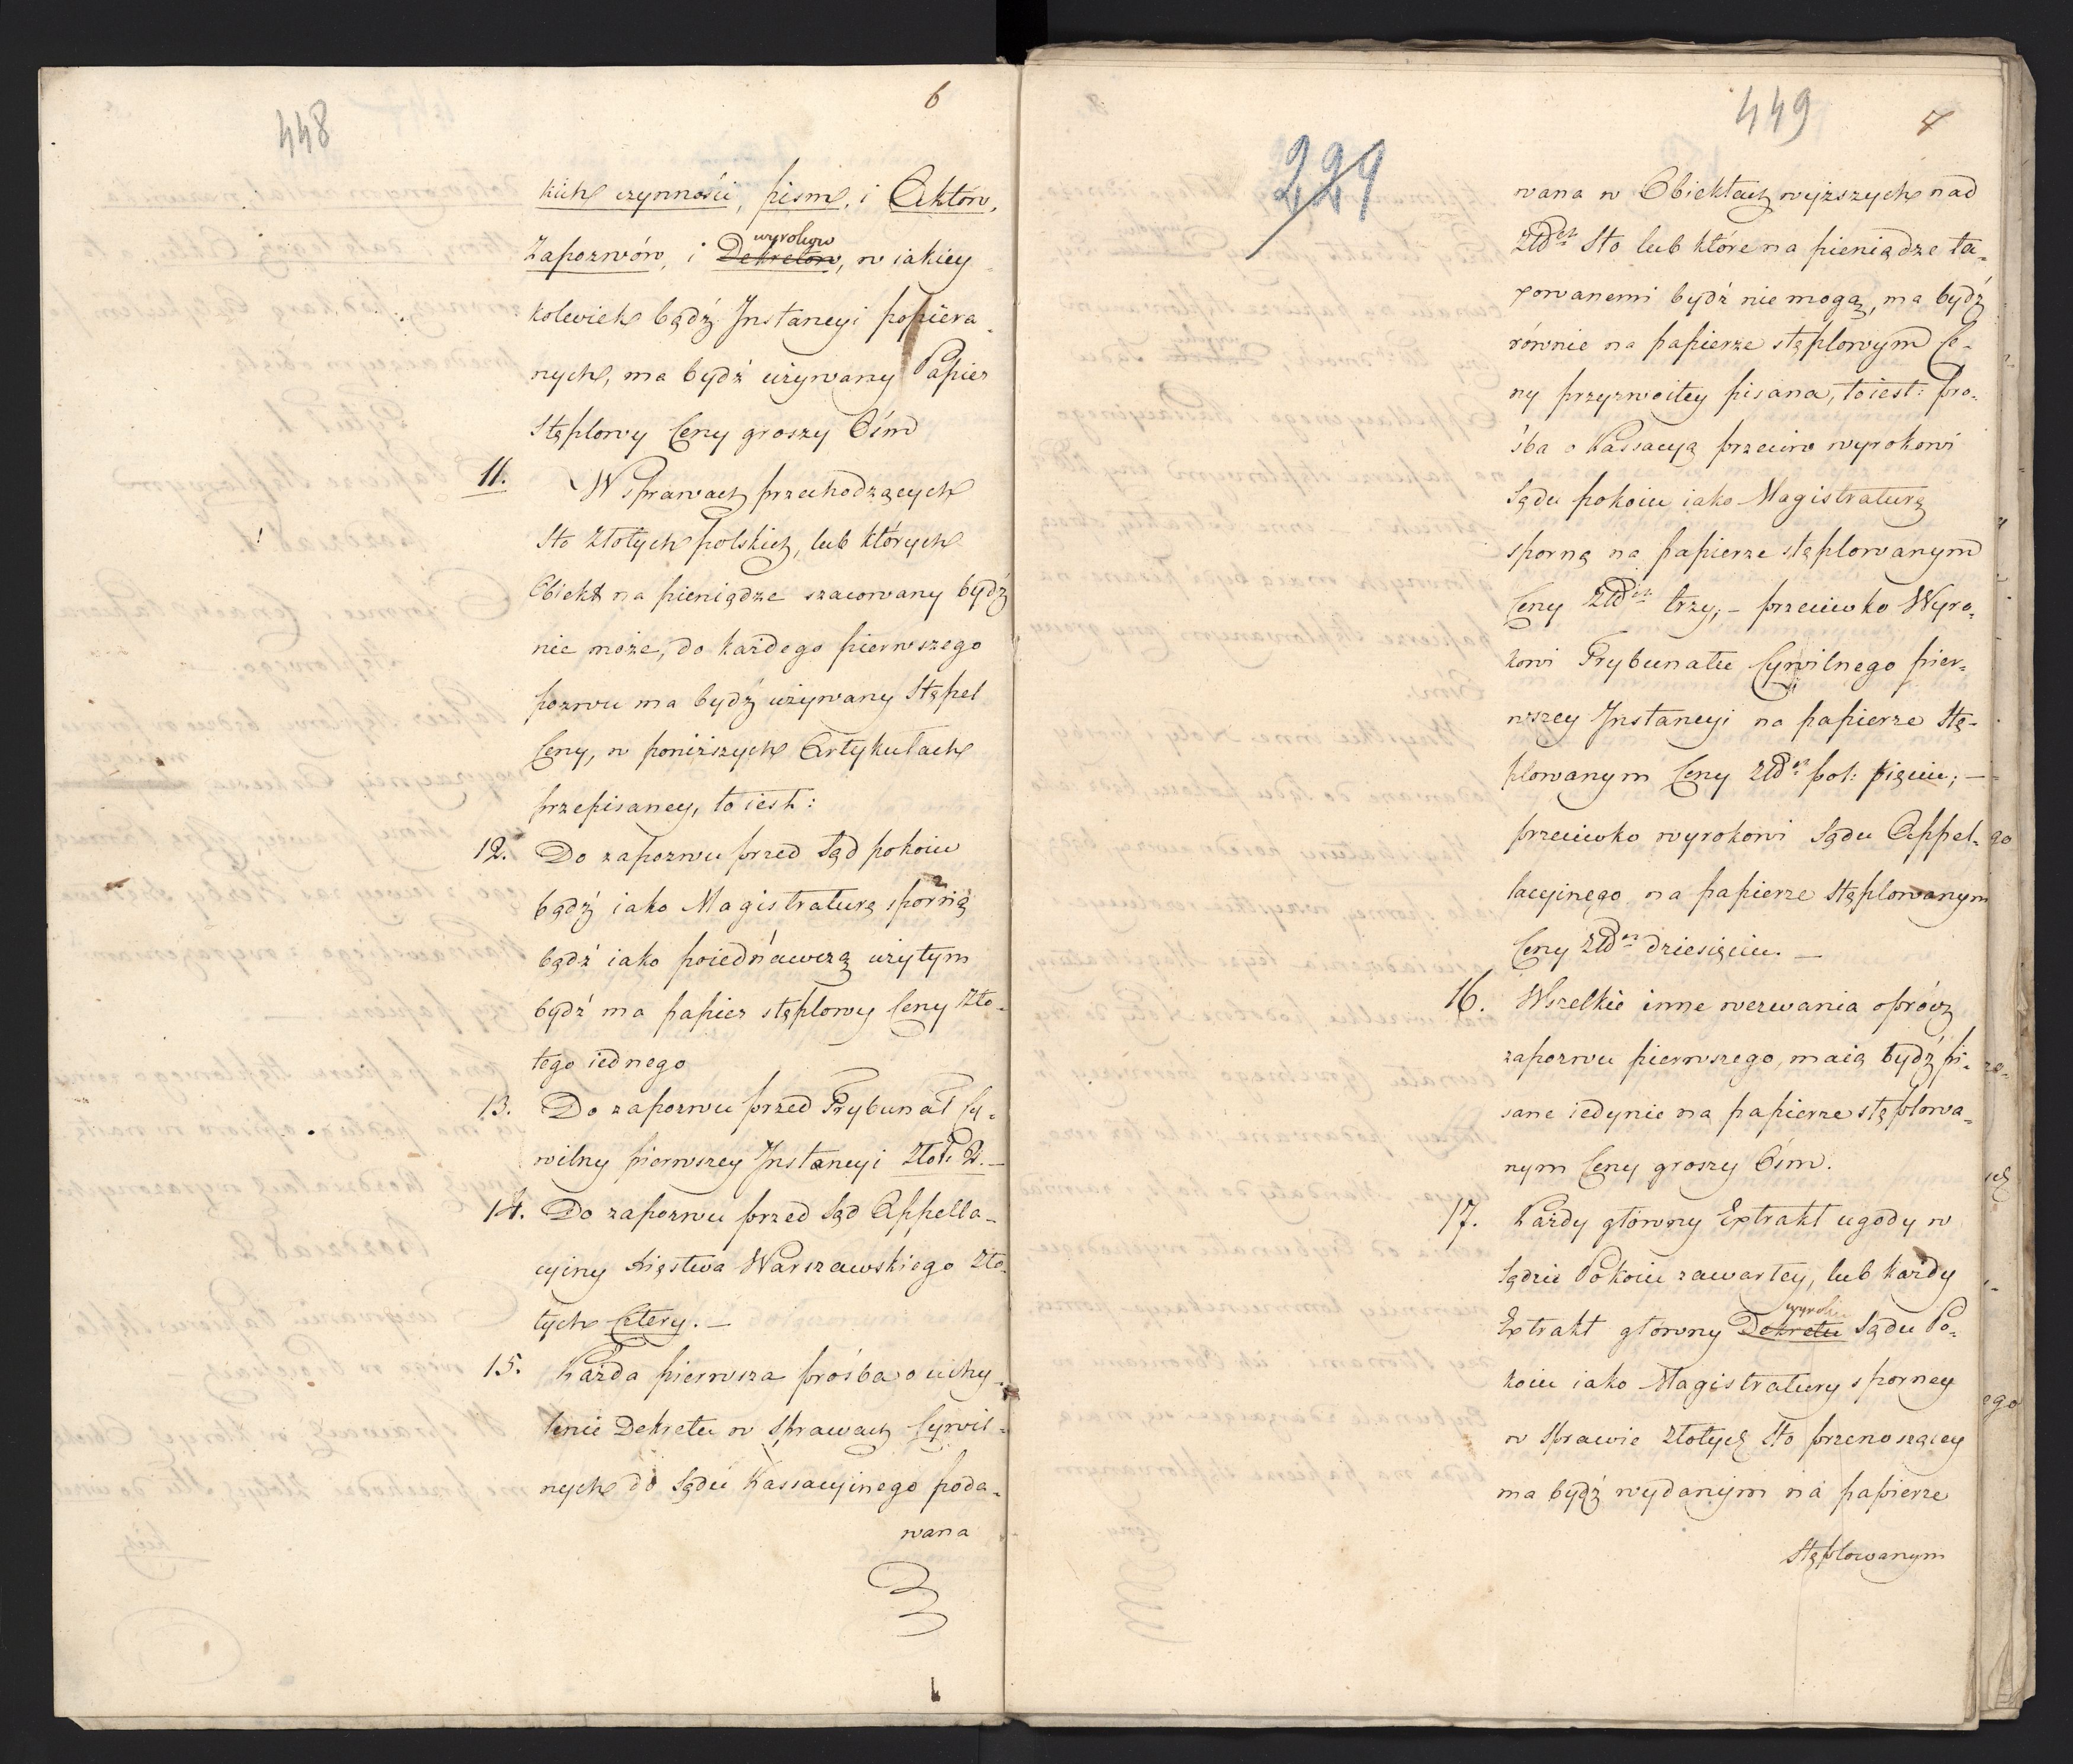 448
6
kich czynności, pism, i Aktów,
Zapozwów, i Dekretów wyroków, w iakiey
kolwiek bądź Instancyi popiera
nych, ma bydź używany Papier
Stęplowy Ceny groszy Ośm
11. W Sprawach przechodzących
sto złotych polskich, lub których
Obiekt na pieniądze szacowany bydź
nie może, do każdego pierwszego
pozwu ma bydź używany Stępel
Ceny, w poniższych Artykułach
przepisaney, to iest:
12. Do zapozwu przed Sąd pokoiu
bądź iako Magistraturę sporną
bądź iako poiednawczą użytym
bydź ma papier stęplowy Ceny Zło-
tego iednego
13. Do zapozwu przed Trybunał Cy-
wilny pierwszey Instancyi Złot: 2.—
14. Do zapozwu przed Sąd Appella-
cyiny Xięstwa Warszawskiego Zło-
tych Cztery. —
15. Każda pierwsza prośba o uchy-
lenie Dekretu w Sprawach Cywil-
nych do Sądu Kassacyinego poda-
wana
449
7
229
wana w Obiektach wyższych nad
Złdch Sto lub które na pieniądze ta-
xowanemi bydź nie mogą, ma bydź
równie na papierze stęplowym Ce-
ny przyzwoitey pisana, to iest: pro-
śba o Kassacyą przeciw wyrokowi
Sądu pokoiu iako Magistraturę
sporną na papierze stęplowanym
Ceny Złdch trzy; — przeciwko Wyro-
kowi Trybunału Cywilnego pier-
wszey Instancyi na papierze Stę-
plowanym Ceny Złdch pol: pięciu; —
przeciwko wyrokowi Sądu Appel-
lacyinego na papierze Stęplowanym
Ceny Złdch dziesięciu. —
16. Wszelkie inne wezwania oprócz
zapozwu pierwszego, maią bydź pi-
sane iedynie na papierze stęplowa-
nym Ceny groszy Ośm.
17. Każdy główny Extrakt ugody w
Sądzie Pokoiu zawartey, lub każdy
Extrakt główny Dekretu wyroku Sądu Po-
koiu iako Magistratury sporney
w Sprawie Złotych Sto przenoszącey
ma bydź wydanym na papierze
Stęplowanym